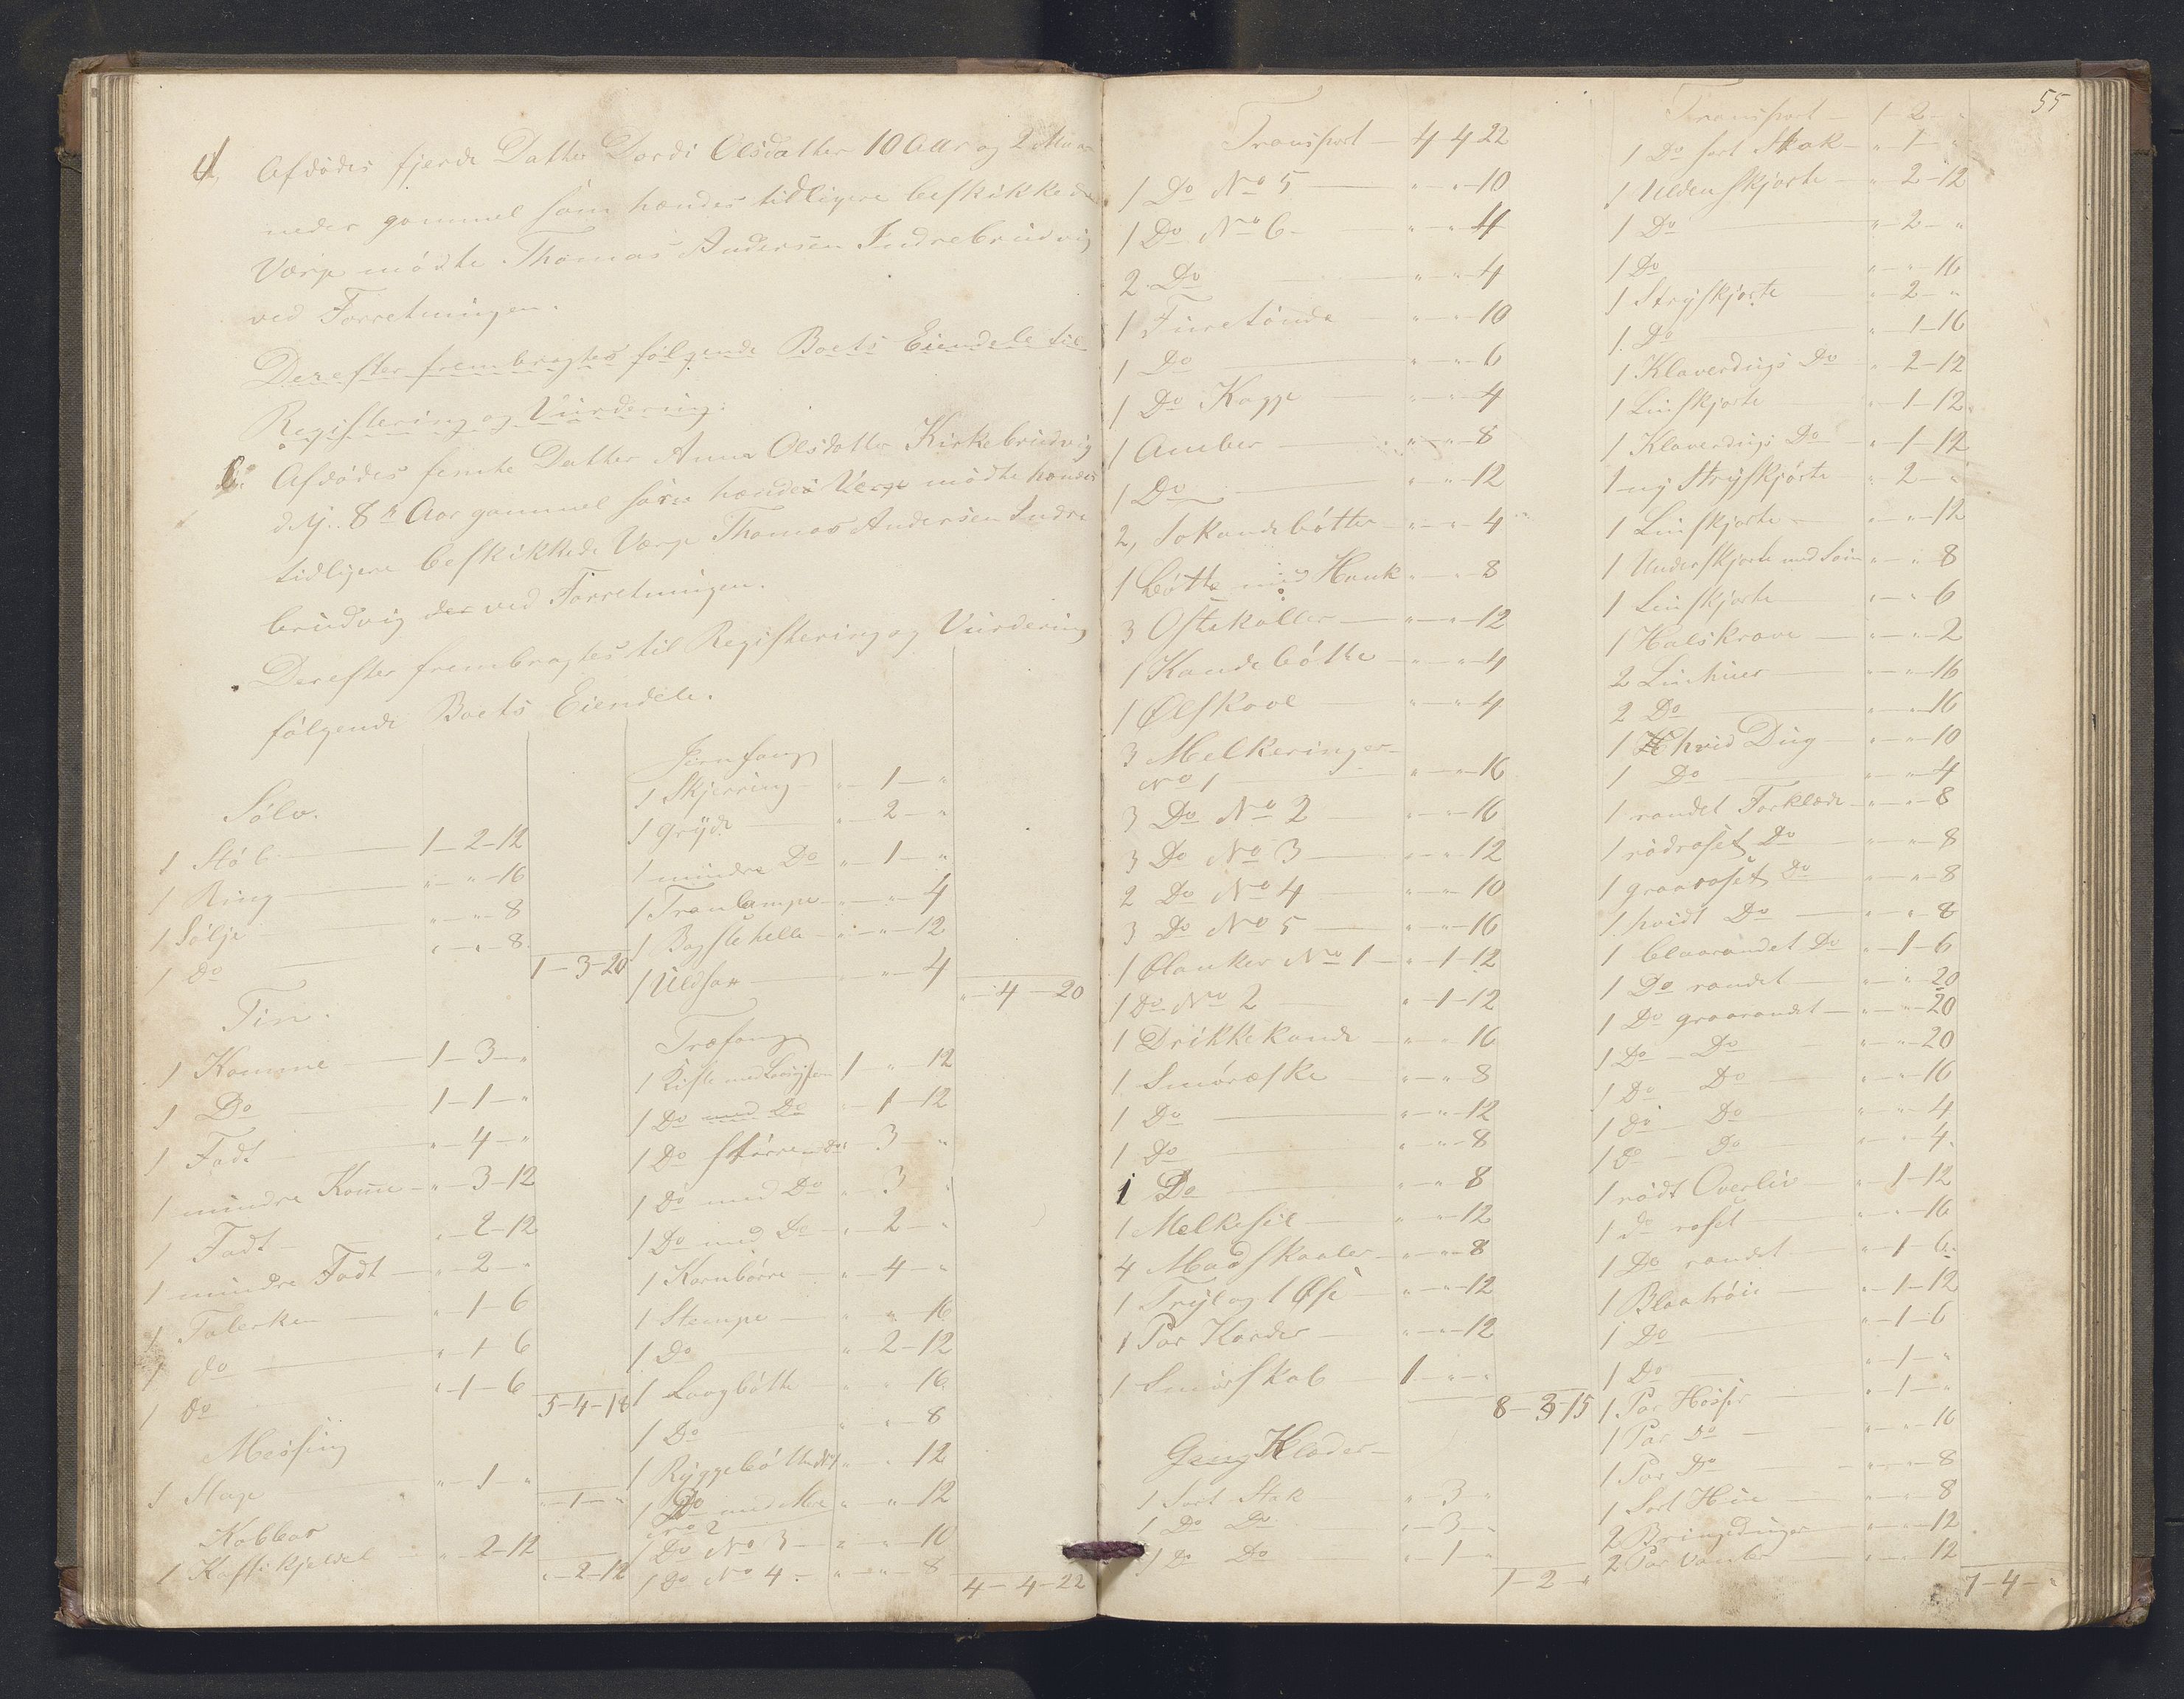 4, Afdødes fjerde Datter Dordi Olsdatter 10 Aar og 2 Maa
neder gammel som hendes tidligere beskikkede
Værge mødte Thomas Andersen Indrebrudvig
ved Forretningen.
Derefter frembragtes følgende Boets Eiendele til
Registering og Vurdering:
Afdødes femte Datter Anna Olsdatter Kirkebrudvig
8 Aar gammel som hendes Værge mødte hendes
tidligere beskikkede Værge Thomas Andersen Indre
brudvig der ved Forretningen.
Derefter frembragtes til Registering og Vurdering
følgende Boets Eiendele.
Sølv.
1 Støb 1-2-12
1 Ring " - " -16
1 Sølje " - " -8
1 Do " - " -8
1-3-20
Tin.
1 Komme 1-3-"
1 Do 1-1-"
1 Fadt "-4-"
1 mindre Komme "-3-12
1 Fadt "-2-12
1 mindre Fadt "-2-"
1 Talerken "-1-6
1 do "-1-6
1 do "-1-6
5-4-18
Messing
1 Stage "-1-"
"-1-"
Kobber
1 Kaffekjedel "-2-12
"-2-12
Jernfang
1 Skjerring "-1-"
1 Gryde "-2-"
1 mindre Do "-1-"
1 Tranlampe "-"-4
1 Bagstehelle "-"-12
1 Uldsax "-"-4
"-4-20
Træfang
1 Kiste med 1-"-12
1 Do med Do "-1-12
1 Do større "-3-"
1 Do med Do "-3-"
1 Do med Do "-2-"
1 Kornbørre "-4-"
1 Stempe "-"-16
1 Do "-2-12
1 Laagbøtte "-"-16
1 Do "-"-8
1 Ryggebøtte No 1 "-"-12
1 Do "-"-12
No 2
1 Do No 3 "-"-10
1 Do No 4 "-"-8
4-4-22
55
Transport 4-4-22
1 Do No 5 "-"-10
1 Do No 6 "-"-4
2 Do "-"-4
1 Furetønde "-"-10
1 Do "-"-6
1 Do Kagge "-"-4
1 Amber "-"-8
1 Do "-"-12
2, Sokandebøtter "-"-4
1 bøtte med Hank "-"-8
3 Ostekoller "-"-12
1 Kandebøtte "-"-4
1 Ølskaal "-"-4
3 Melkeringer
No 1 "-"-16
3 Do No 2 "-"-16
3 Do No 3 "-"-12
2 Do No 4 "-"-10
3 Do No 5 "-"-16
1 Blanker No 1 "-1-12
1 Do No 2 "-1-12
1 Drikkekande "-"-16
1 Smøræske "-"-8
1 Do "-"-12
1 Do "-"-8
1 Do "-"-8
1 Melkesie "-"-12
4 Madskaaler "-"-8
1 Tryl og 1 Øse "-"-12
1 Par Karder "-"-12
1 Smørskab 1-"-"
8-3-15
Gang Klæder
1 Sort Stak "-3-"
1 Do Do "-3-"
1 Do Do "-1-"
1-2-"
Transport 1-2-"
1 Do sort Stak "-1-"
1 Uldenskjorte "-2-12
1 Do "-2-"
1 Do "-"-16
1 Stryskjorte "-2-"
1 Do "-1-16
1 Klaverdugs Do "-2-12
1 Linskjorte "-1-12
1 Klaverdugs Do "-1-12
1 ny Stryskjorte "-2-"
1 Linskjorte "-"-12
1 Underskjorte med Søm "-"-8
1 Linskjorte "-"-6
1 Halskrave "-"-2
2 Linhuer "-"-16
2 Do "-"-16
1 hvid Dug "-"-10
1 Do "-"-4
1 randet Forklæde "-"-8
1 rødroset Do "-"-8
1 graaroset Do "-"-8
1 hvidt Do "-"-8
1 blaarandet Do "-1-6
1 Do randet "-"-20
1 Do graarandet "-"-20
1 Do Do "-"-20
1 Do Do "-"-16
1 Do Do "-"-4
1 Do Do "-"-4
1 rødt Overliv "-1-12
1 do roset "-"-16
1 Do randet "-1-6
1 Blaatrøie "-1-12
1 Do "-1-6
1 Do "-1-"
1 Par Hoser "-1-"
1 Par Do "-"-16
1 Par Do "-"-8
1 Sort Hue "-"-8
2 Bringeduger "-"-12
2 Par Vanter "-"-12
7-4-"